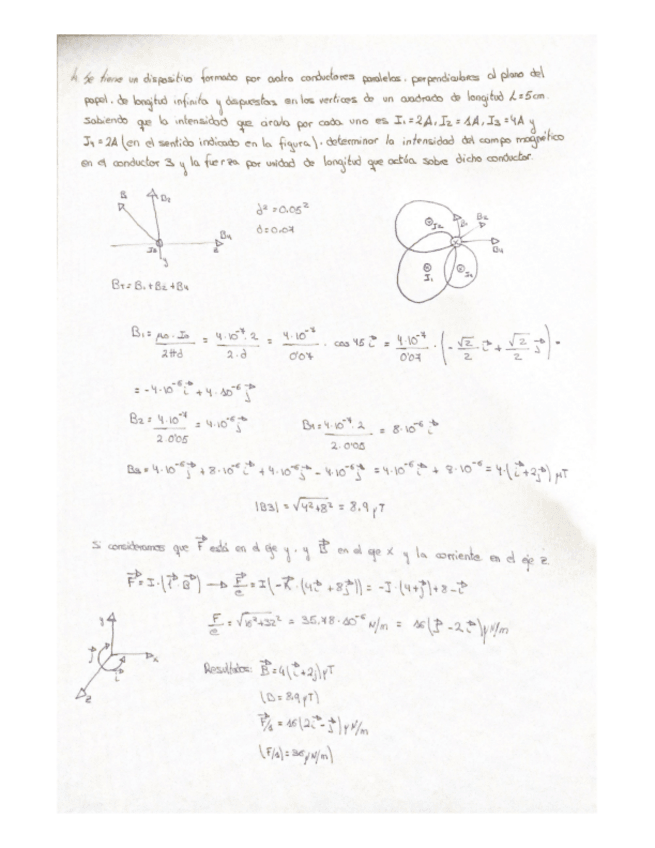 Se tiene un dispositivo formado por cuatro conductores paralelos, perpendiculares al plano del
papel, de longitud infinita y dispuestos en los vertices de un cuadrado de longitud L=5cm.
Sabiendo que la intensidad que circula por cada uno es I₁=2A, I₂=1A, I₃=4A y
I₄=2A (en el sentido indicado en la figura), determinar la intensidad del campo magnético
en el conductor 3 y la fuerza por unidad de longitud que actúa sobre dicho conductor.
B₁ B₂ B₄ I₃ y
d²=0.05²
d=0.07
I₂ B₂ B₄ I₁ I₄
B_T=B₁+B₂+B₄
B₁= μ₀·I₀ / 2πd = 4·10⁻⁷·2 / 2·d = 4·10⁻⁷ / 0'07 · cos 45 i = 4·10⁻⁷ / 0'07 · (-√2/2 i + √2/2 j) =
= -4·10⁻⁶ i + 4·10⁻⁶ j
B₂= 4·10⁻⁷ / 2·0'05 = 4·10⁻⁶ j B₄= 4·10⁻⁷·2 / 2·0'05 = 8·10⁻⁶ i
B₃= 4·10⁻⁶ j + 8·10⁻⁶ i + 4·10⁻⁶ j - 4·10⁻⁶ j = 4·10⁻⁶ i + 8·10⁻⁶ = 4·(i+2j) μT
|B3| = √4²+8² = 8.9 μT
Si consideramos que F está en el eje y, y B en el eje x y la corriente en el eje z
F=I·(l·B) → F/e = I(-k·(4i+8j)) = -I·(4+j)+8-i
F/e = √16²+32² = 35.78·10⁻⁶ N/m = 16(j-2i) μN/m
y j x i z
Resultados: B=4(i+2j) μT
(B=8.9 μT)
F/s = 16(2i-j) μN/m
(F/s)=36 μN/m)